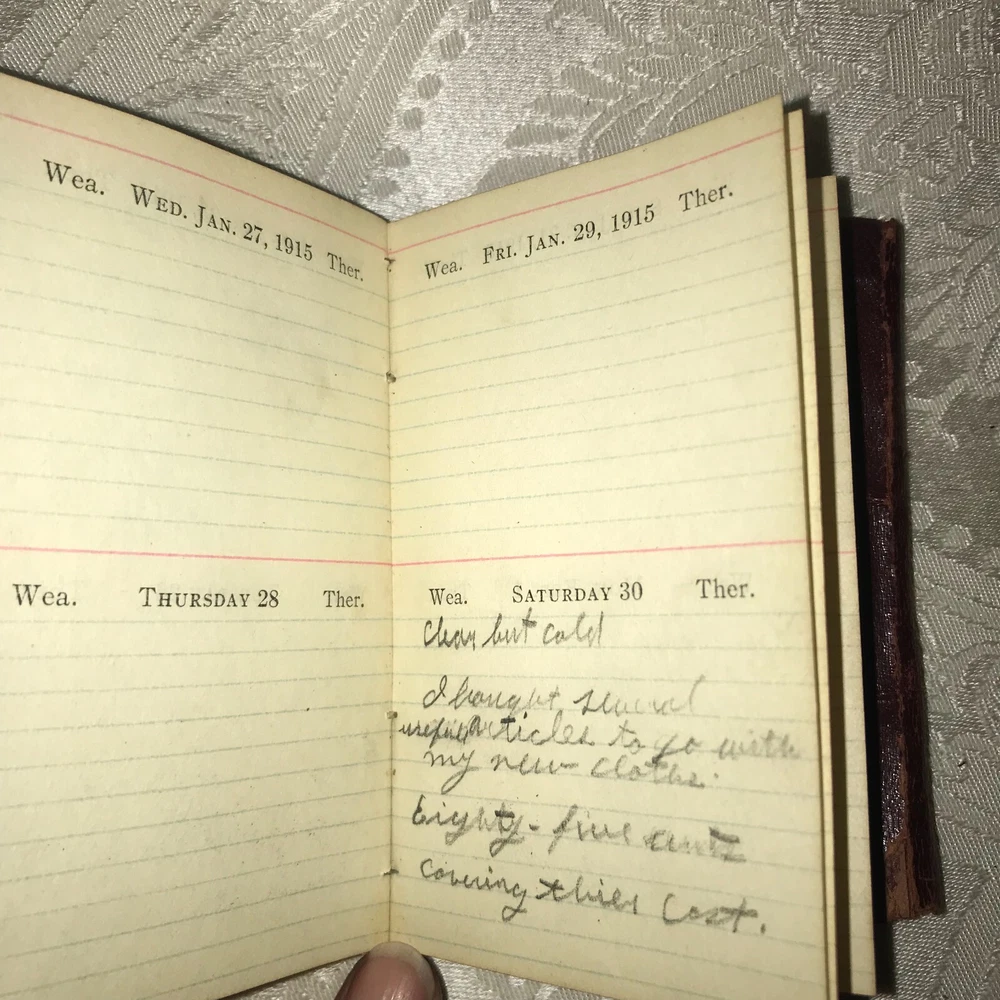 Wea. WED. JAN. 27, 1915 Ther.
Wea. THURSDAY 28 Ther.
Wea. FRI. JAN. 29, 1915 Ther.
Wea. SATURDAY 30 Ther.
Clear but cold
I bought several
useful Articles to go with
my new cloths.
Eighty-five cents
covering thier cost.